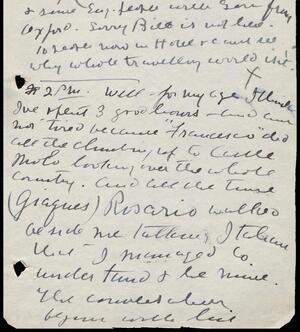 & some Eng. people with [them] from
Oxford. Sorry Bill is not here.
to rest now in Hotel & can't see
why whole travelling world isn't.
2 P.M. Well - for my age I think
I've spent 3 good hours - and am
not tired because "Francesco" did
all the climbing, up to Castle
Molo looking over the whole
country. And all the time
(Giaques) Rosario walked
beside me talking Italian
that I managed to
understand & he mine.
The conversation
began with his